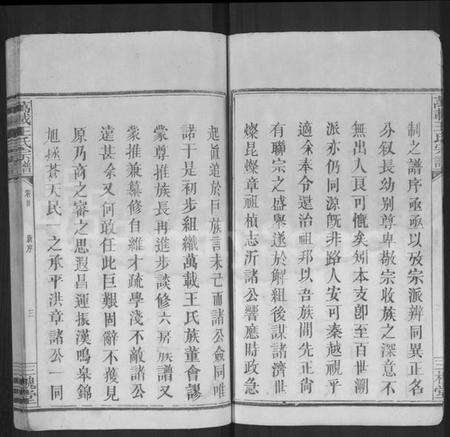 制之譜序亟亟以攷宗派辨同異正名
分叙長幼別尊卑敬宗收族之深意不
無出入良可慨矣矧本支卽至百世溯
派亦仍同源既非路人安可秦越視乎
適余奉令還治祖邦以吾族間先正尚
有聯宗之盛舉遂於解組後謀諸濟世
燦昆燦章祖楨志沂諸公響應時政急
起直追於巨族言未已而諸公僉同唯
諾于是初步組織萬載王氏族董會謬
蒙尊推族長再進步談修六房族譜又
蒙推兼纂修自維才疏學淺不敵諸公
遠甚余又何敢任此巨艱固辭不獲見
原乃商之審之思遐昌運振漢鳴皋錦
旭拯蒼天民一之承平洪章諸公一同
萬載王氏宗譜
卷首
新序
三
三槐堂
萬載王氏宗譜
三槐堂